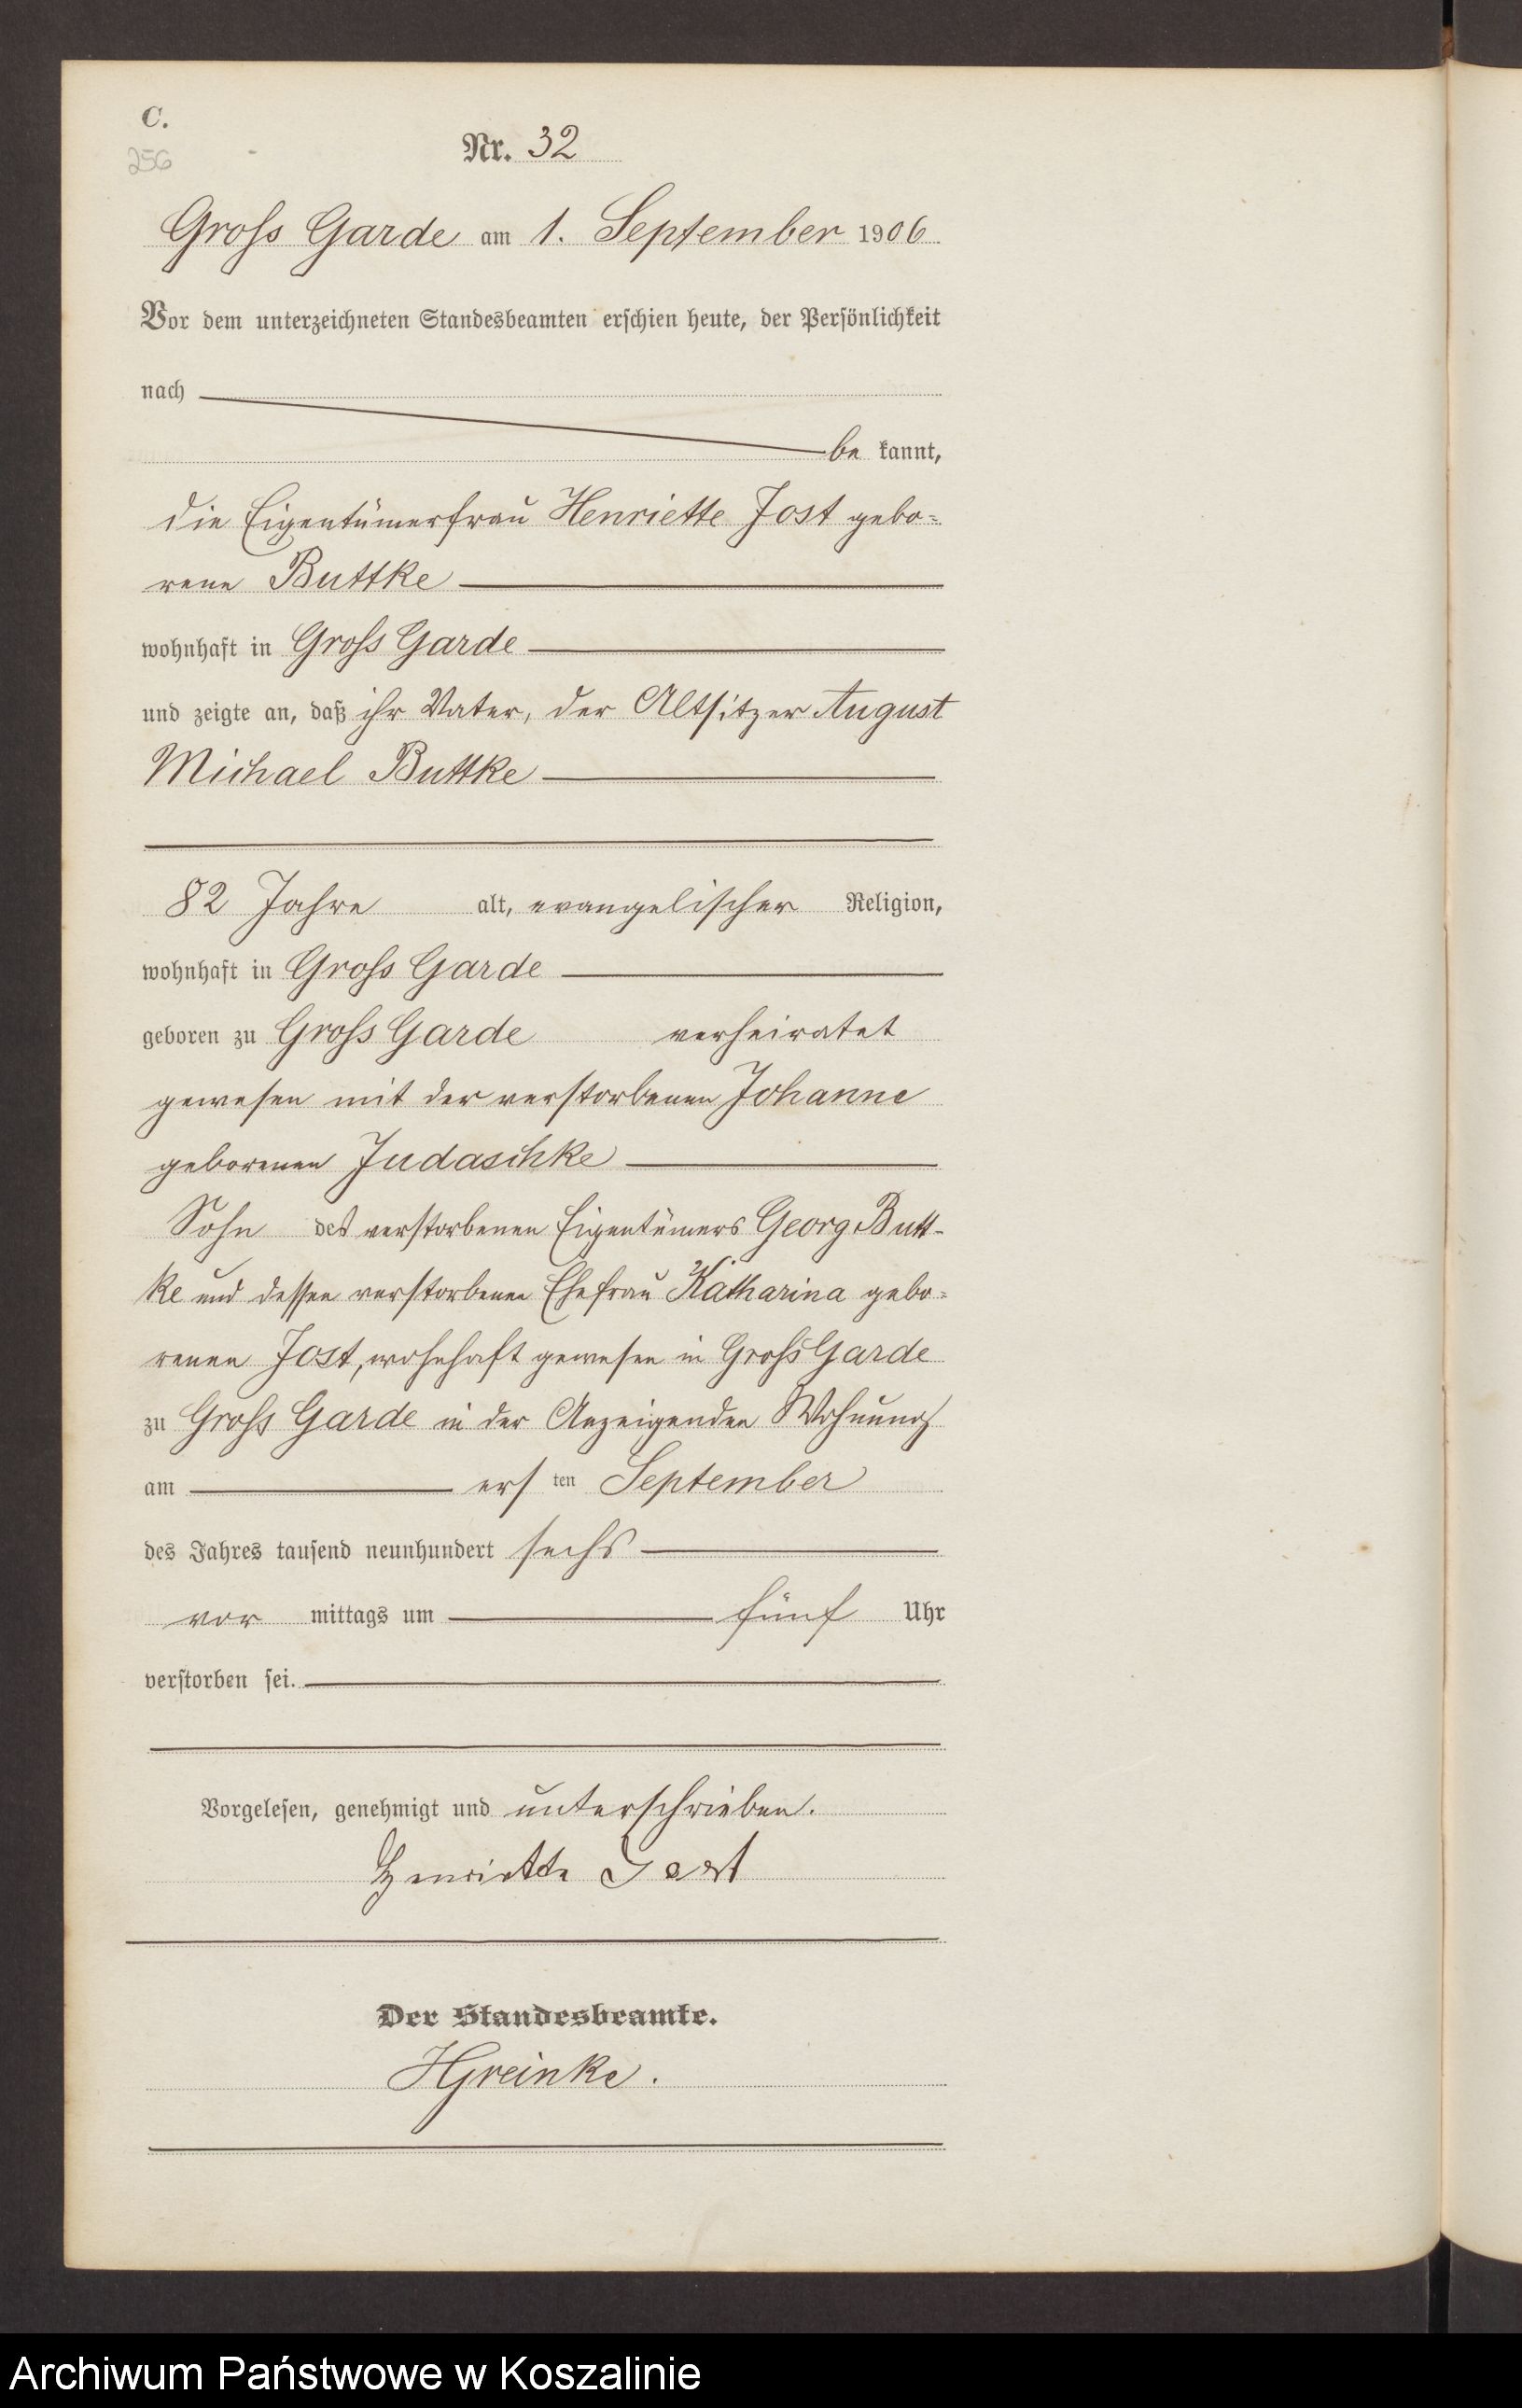 C.
256
Nr. 32
Gross Garde am 1. September 1906
Vor dem unterzeichneten Standesbeamten erschien heute, der Persönlichkeit
nach
be kannt,
die Eigentümerfrau Henriette Jost gebo=
rene Buttke
wohnhaft in Gross Garde
und zeigte an, daß ihr Vater, der Altsitzer August
Michael Buttke
82 Jahre alt, evangelischer Religion,
wohnhaft in Gross Garde
geboren zu Gross Garde verheiratet
gewesen mit der verstorbenen Johanne
geborenen Judaschke
Sohn des verstorbenen Eigentümers Georg Butt-
ke und dessen verstorbenen Ehefrau Katharina gebo=
renen Jost, wohnhaft gewesen in Gross Garde
zu Gross Garde in der Anzeigenden Wohnung
am ers ten September
des Jahres tausend neunhundert sechs
vor mittags um fünf Uhr
verstorben sei.
Vorgelesen, genehmigt und unterschrieben.
Henriette Jost
Der Standesbeamte.
HGreinke.
Archiwum Państwowe w Koszalinie